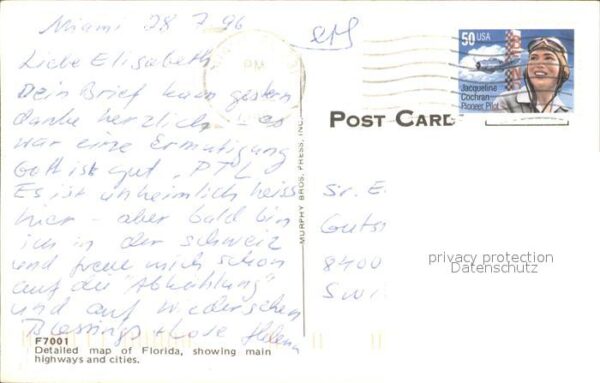 Miami 28 7 96
Liebe Elisabeth,
Dein Brief kam gestern
danke herzlich – es
war eine Ermutigung
Gott ist gut, PTL
Es ist unheimlich heiss
hier – aber bald bin
ich in der Schweiz
und freue mich schon
auf die "Abkühlung"
und auf wiedersehen
Blessings + Love Helena
PM
50 USA
Jacqueline
Cochran
Pioneer Pilot
POST CARD
MURPHY BROS. PRESS, INC.
Sr. E
Guts
8400
Swi
privacy protection
Datenschutz
F7001
Detailed map of Florida, showing main
highways and cities.